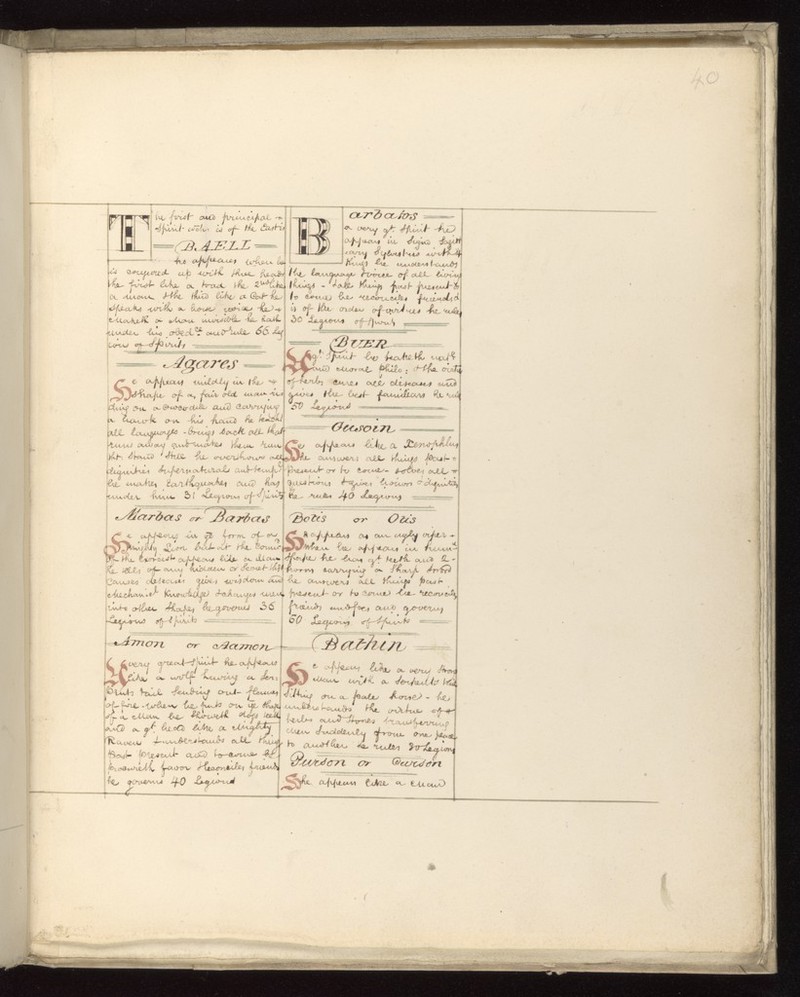 40
The first and principal
Spirit wch is of the East is
BAELL
he appears when he
is conjured up with three heads
the first like a toad the 2nd like
a man & the third like a Cat he
speaks with a horse voice he
maketh a man invisible he hath
under his obedce and rule 66 Leg
ions of Spirits
Agares
He appears mildly in the
shape of a fair old man ri
ding on a crocodile and carrying
a hawk on his hand he teaches
all languages brings back all that
runs away and makes them run
tht stand still he overthrows all
dignities Supernatural and temp
he makes Earthquakes and has
under him 31 Legions of Spirits
Marbas or Barbas
He appears in ye form of a
mighty Lion but at the Comd
of the Exorcist appears like a Man
he tells of any hidden or Secret thgs
Causes deseases gives wisdom and
Mechanical Knowledge & changes men
into other Shapes he governs 36
Legions of Spirits
Amon or Aamon
A very great Spirit he appears
like a wolf having a Ser
pents tail Sending out flames
of fire when he puts on ye shape
of a man he Showeth dogs teeth
and a gt head like a mighty
Raven & understands all things
Past Present and to come &
procureth favor & reconciles friends
he governs 40 Legions
Barbatos
a very gt Spirit he
appears in Signo Sagitt
ary Sylvestris with 4
Kings he understands
the language & voice of all living
things - tells things past present &
to come he reconciles friends &
is of the order of virtues he rules
30 Legions of Spirits
BUER
A gt Spirit he teaketh natl
and moral Philo: & the virtu
of herbs cures all deseases and
gives the best familiars he rul
50 Legions
Gusoin
He appears like a Xenophlus
he answers all things Past
Present or to come solves all
questions & gives honor & dignities
he rules 40 Legions
Botis or Otis
He appears as an ugly viper
when he appears in human
shape he has gt teeth and 2
horns carrying a Sharp Sword
he answers all things past
present or to come he reconciles
friends and foes and governs
60 Legions of Spirits
Bathin
He appears like a very Strong
Man with a Serpents tail
Sitting on a pale horse - he
understands the virtue of
herbs and Stones transferring
men Suddenly from one place
to another he rules 30 Legions
Purson or Curson
He appears like a man